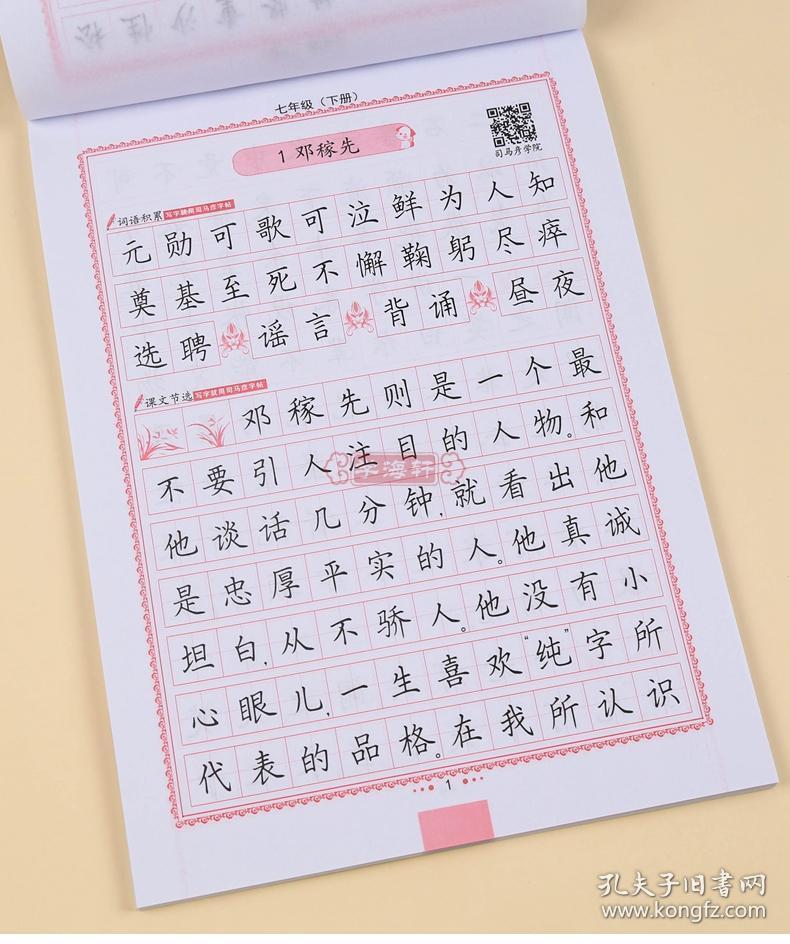 松性沙重
七年级（下册）
1 邓稼先
司马彦学院
词语积累 写字就用司马彦字帖
元勋可歌可泣鲜为人知
奠基至死不懈鞠躬尽瘁
选聘 谣言 背诵 昼夜
课文节选 写字就用司马彦字帖
邓稼先则是一个最
不要引人注目的人物。和
他谈话几分钟，就看出他
是忠厚平实的人。他真诚
坦白，从不骄人。他没有小
心眼儿，一生喜欢“纯”字所
代表的品格。在我所认识
1
字海轩
孔夫子旧书网
www.kongfz.com